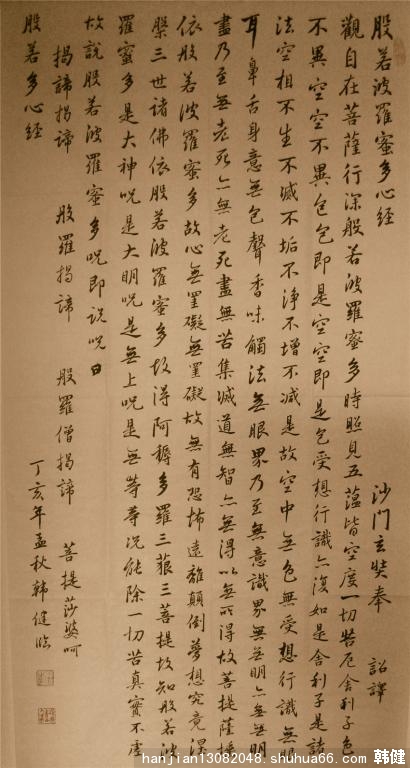 般若波羅蜜多心經
沙門玄奘奉 詔譯
觀自在菩薩行深般若波羅蜜多時照見五蘊皆空度一切苦厄舍利子色
不異空空不異色色即是空空即是色受想行識亦復如是舍利子是諸
法空相不生不滅不垢不淨不增不減是故空中無色無受想行識無眼
耳鼻舌身意無色聲香味觸法無眼界乃至無意識界無無明亦無無明
盡乃至無老死亦無老死盡無苦集滅道無智亦無得以無所得故菩提薩埵
依般若波羅蜜多故心無罣礙無罣礙故無有恐怖遠離顛倒夢想究竟涅
槃三世諸佛依般若波羅蜜多故得阿耨多羅三藐三菩提故知般若波
羅蜜多是大神咒是大明咒是無上咒是無等等咒能除一切苦真實不虛
故說般若波羅蜜多咒即說咒曰
揭諦揭諦 般羅揭諦 般羅僧揭諦 菩提莎婆呵
般若多心經
丁亥年孟秋韓健臨
hanjian13082048.shuhua66.com 韩健